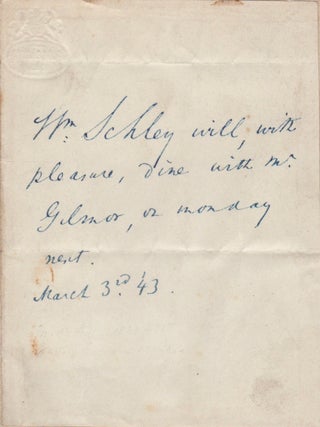 Wm. Schley will, with
pleasure, dine with Mr.
Gilmor, on monday
next.
March 3rd. '43.